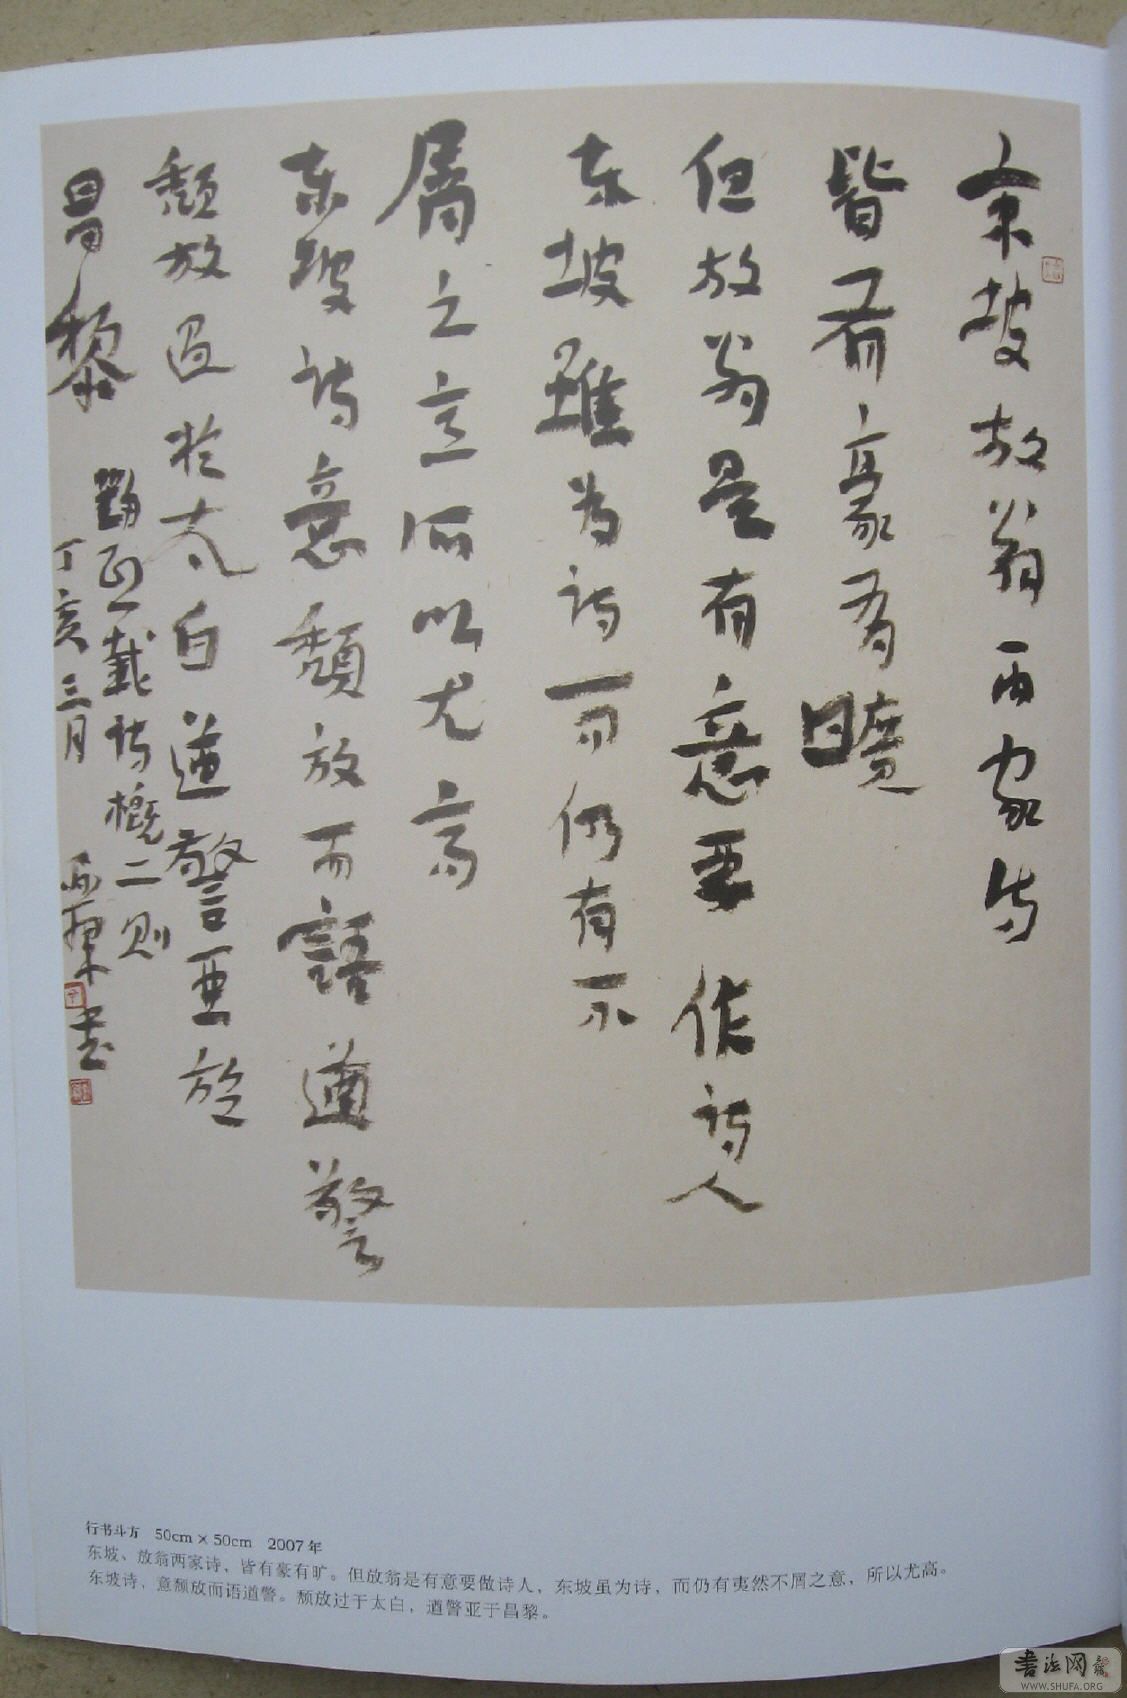 东坡放翁两家诗
皆有豪有曠
但放翁是有意要作诗人
东坡雖为诗而仍有不
屑之意所以尤高
东坡诗意頹放而语遒警
頹放過於太白遒警亚於
昌黎
劉熙載诗概二则
丁亥三月 书
行书斗方 50cm×50cm 2007年
东坡、放翁两家诗，皆有豪有旷。但放翁是有意要做诗人，东坡虽为诗，而仍有夷然不屑之意，所以尤高。
东坡诗，意颓放而语道警。颓放过于太白，道警亚于昌黎。
書法网
WWW.SHUFA.ORG